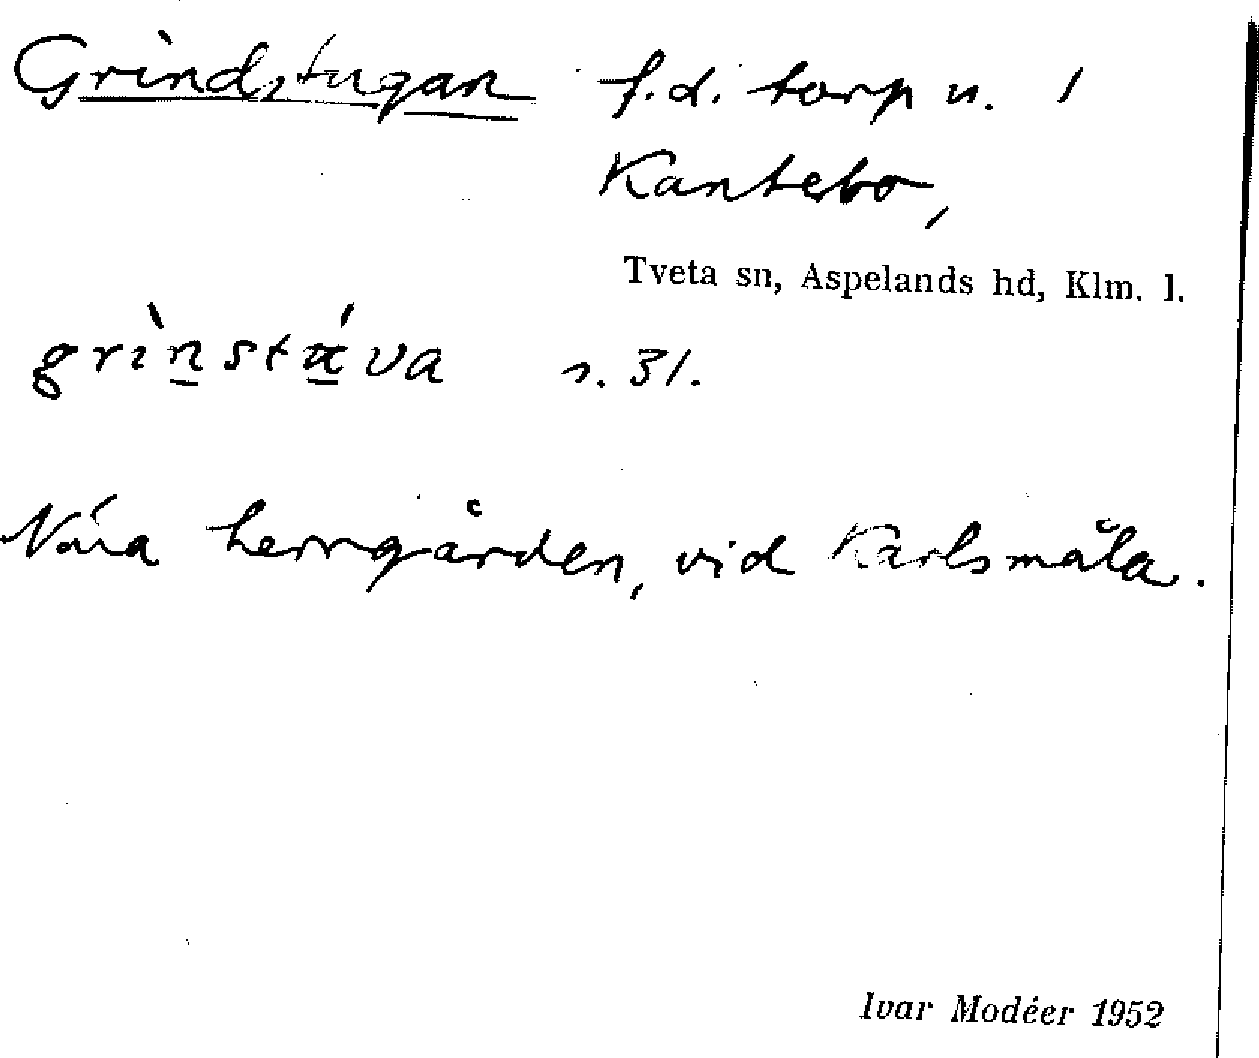 Grindstugan f.d. torp u. 1
Kantebo,
Tveta sn, Aspelands hd, Klm. l.
s. 31.
Nära herrgården, vid Karlsmåla.
Ivar Modéer 1952